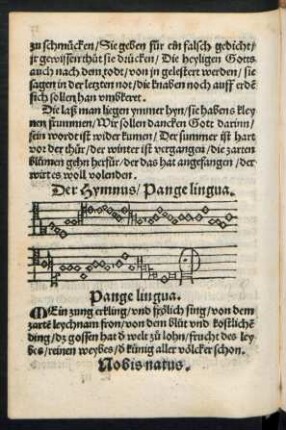 zu schmücken/ Sie geben für ein falsch gedicht/
jr gewissen thůt sie drücken/ Die heyligen Gotts
auch nach dem todt/ von jn gelestert werden/ sie
sagen in der letzten not/ die knaben noch auff erdē
sich sollen han vmbkeret.
Die laß man liegen ymmer hyn/ sie habens kley
nen frummen/ Wir sollen dancken Gott darinn/
sein wordt ist wider kumen/ Der summer ist hart
vor der thür/ der winter ist vergangen/ die zarten
blümen gehn herfür/ der das hat angefangen/ der
wirt es woll volenden.
Der Hymnus/ Pange lingua.
Pange lingua.
MEin zung erkling/ vnd frölich sing/ von dem
zartē leychnam fron/ von dem blůt vnd kostlichē
ding/ dz gossen hat d welt zu lohn/ frucht des ley
bes/ reinen weybes/ d künig aller völcker schon.
Nobis natus.